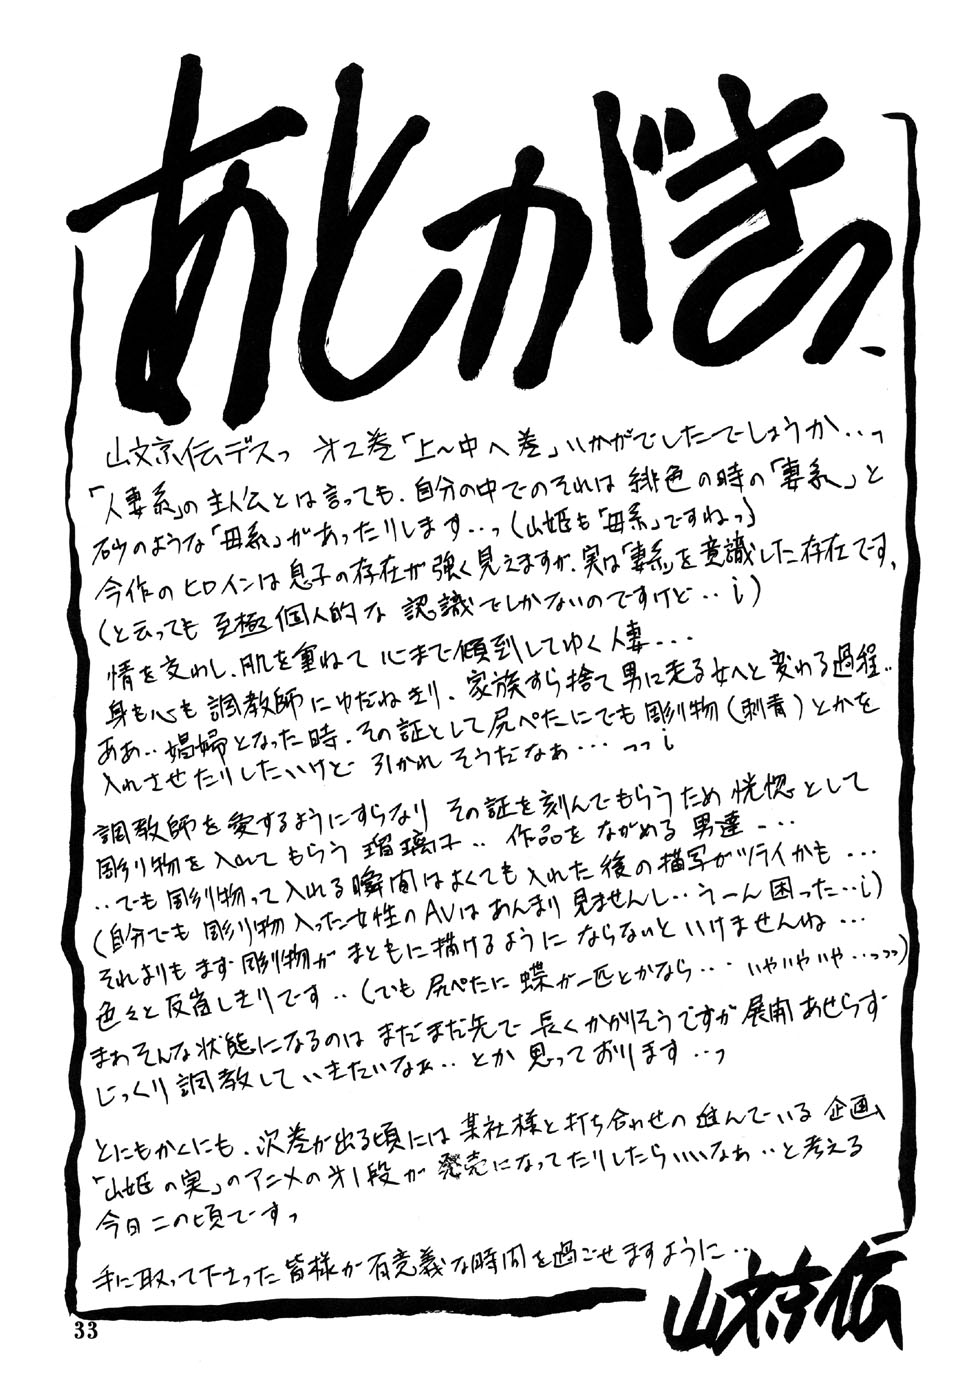 あとがきっ
山文京伝デスっ 才2巻「上〜中へ巻」いかがでしたでしょうか‥っ
「人妻系」の主人公とは言っても、自分の中でのそれは緋色の時の「妻系」と
砂のような「母系」があったりします…っ(山姫も「母系」ですねっ)
今作のヒロインは息子の存在が強く見えますが、実は「妻系」を意識した存在です、
(と云っても至極個人的な認識でしかないのですけど‥i)
情を交わし、肌を重ねて心まで傾倒してゆく人妻…
身も心も調教師にゆだねきり、家族すら捨て男に走る女へと変わる過程‥
ああ‥娼婦となった時、その証として尻ぺたにでも彫り物(刺青)とかを
入れさせたりしたいけど引かれそうだなぁ…っっi
調教師を愛するようにすらなりその証を刻んでもらうため恍惚として
彫り物を入れてもらう瑠璃子‥作品をながめる男達…
‥でも彫り物って入れる瞬間はよくても入れた後の描写がツライかも…
(自分でも彫り物入った女性のAVはあんまり見ませんし‥うーん困った…i)
それよりもまず彫り物がまともに描けるようにならないといけませんね…
色々と反省しきりです‥(でも尻ぺたに蝶が一匹とかなら…いやいやいや…っっっ)
まぁそんな状態になるのはまだまだ先で長くかかりそうですが展開あせらず
じっくり調教していきたいなぁ‥とか思っております…っ
とにもかくにも、次巻が出る頃には某社様と打ち合わせの進んでいる企画、
「山姫の実」のアニメの才1段が発売になってたりしたらいいなぁ‥と考える
今日この頃ですっ
手に取って下さった皆様が有意義な時間を過ごせますように…
山文京伝
33